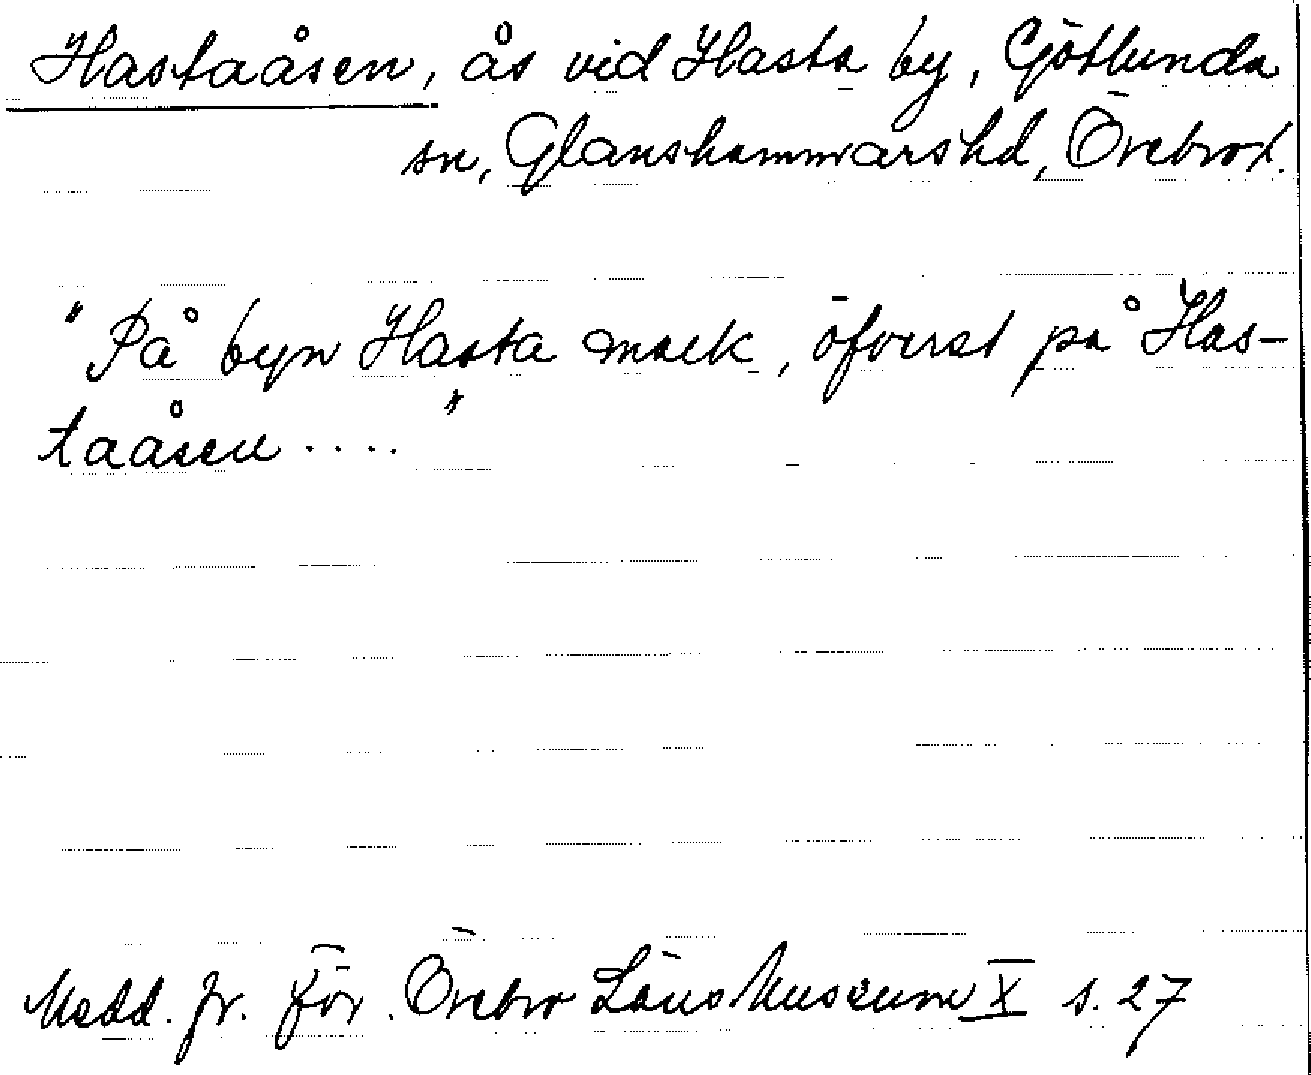 Hastaåsen, ås vid Hasta by, Götlunda
sn, Glanshammars hd, Örebro l.
"På byn Hasta mark, öfverst på Has-
taåsen ...."
Medd. fr. För. Örebro Läns Museum X s. 27